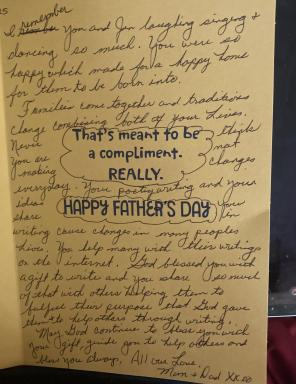 25
I remember
you and Jen laughing singing &
dancing so much. You were so
happy which made for a happy home
for them to be born into.
Families come together and traditions
change combining both of your lives.
Never think
That's meant to be
you are not
a compliment.
making changes
REALLY.
everyday. Your poetry writing and your
ideas you
HAPPY FATHER'S DAY
share in
writing cause changes in many peoples
lives. You help many with their writings
on the internet. God blessed you with
a gift to write and you share so much
of that with others helping them to
fulfill their purpose that God gave
them to help others through writing.
May God continue to bless you with
your gift, guide you to help others and
bless you always. All our Love,
Mom & Dad XXOO